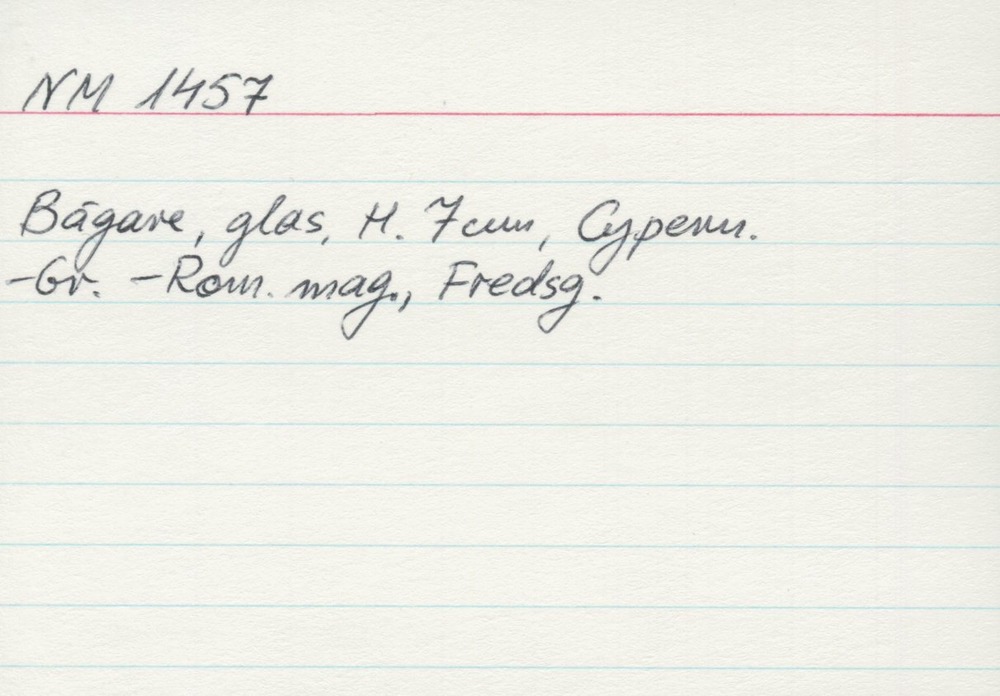 NM 1457
Bägare, glas, H. 7cm, Cypern.
-Gr. -Rom. mag., Fredsg.